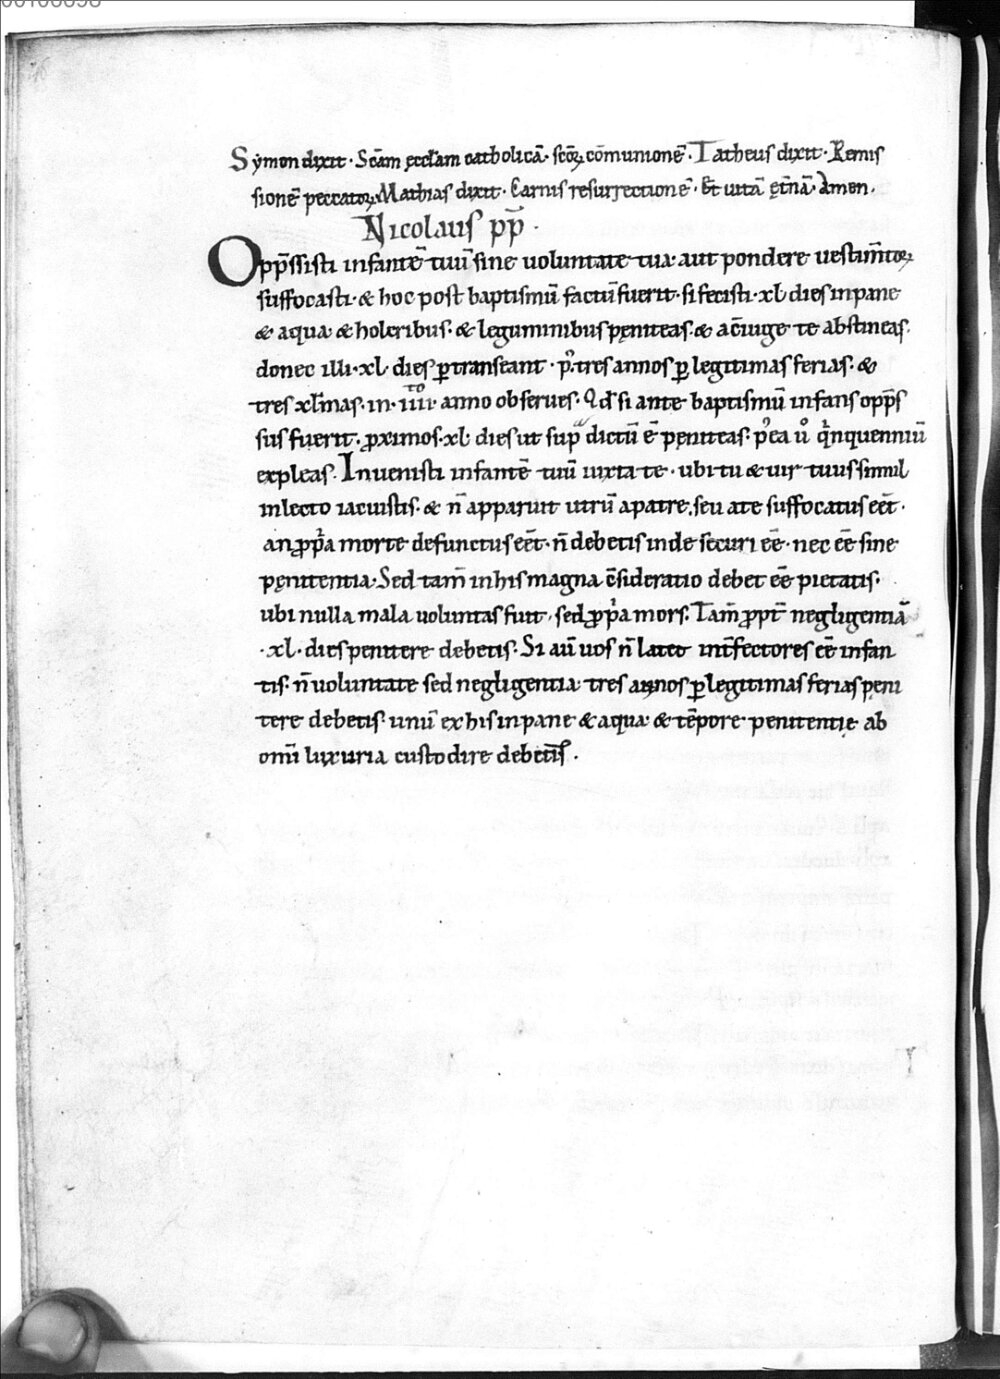 Symon dixit · Scam ęccłam catholicā · scoꝝ cōmunionē · Tatheus dixit · Remis
sionē peccatoꝝ. Mathias dixit · Carnis resurrectionē · Et uitā ętnā · Amen.
Nicolaus pp̄ ·
Opp̄ssisti infantē tuū sine uoluntate tua · aut pondere uestim̄toꝝ
suffocasti · & hoc post baptismū factū fuerit · si fecisti · xl dies in pane
& aqua · & holeribus · & leguminibus pęniteas · & a c̄iuge te abstineas ·
donec illi · xl · dies ꝑtranseant · pꝰ tres annos ꝑ legitimas ferias · &
tres xl̄mas · in · iiiito · anno obserues · Qd si ante baptismū infans opp̄s
sus fuerit · ꝓximos · xl dies ut supᵃ dictū ē pęniteas · pꝰea u° qinquenniū
expleas · Inuenisti infantē tuū iuxta te · ubi tu & uir tuus simul
in lecto iacuistis · & n̄ apparuit utrū a patre, seu a te suffocatus eēt ·
an ꝓpⁱa morte defunctus eēt · n̄ debetis inde securi eē · nec eē sine
pęnitentia · Sed tam̄ in his magna c̄sideratio debet eē pietatis ·
ubi nulla mala uoluntas fuit, sed ꝓpⁱa mors. Tam̄ ꝓpt̄ negligentiā
· xl · dies penitere debetis · Si aū uos n̄ latet int̄fectores eē infan
tis · n̄ uoluntate sed negligentia · tres annos ꝑ legitimas ferias peni
tere debetis · unū ex his in pane & aqua · & tēpore penitentię ab
omī luxuria custodire debetis ·